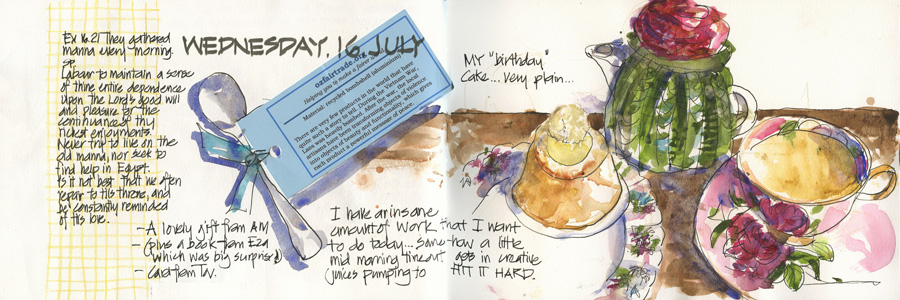 Ex 16.21 They gathered
manna every morning.
sp.
Labour to maintain a sense
of thine entire dependence
upon the Lord's good will
and pleasure for the
continuance of thy
richest enjoyments.
Never try to live on the
old manna, nor seek to
find help in Egypt.
Is it not best that we often
repair to His throne, and
be constantly reminded
of his love.
WEDNESDAY. 16. JULY
ozfairtrade.org
Helping you to make a fairer
Material: recycled bombshell (aluminium)
There are very few products in the world that have
quite such a story to tell. During the Vietnam War,
Laos was heavily bombed. After the war, the local
artisans have been transforming objects of violence
into objects of beauty and functionality.
each product a powerful message of peace.
- A lovely gift from AM
- (plus a book from Eza
which was big surprise)
- Card from TW.
MY "birthday"
Cake... very plain...
I have an insane
amount of work that I want
to do today... some-how a little
mid morning timeout gets in creative
juices pumping to HIT IT HARD.